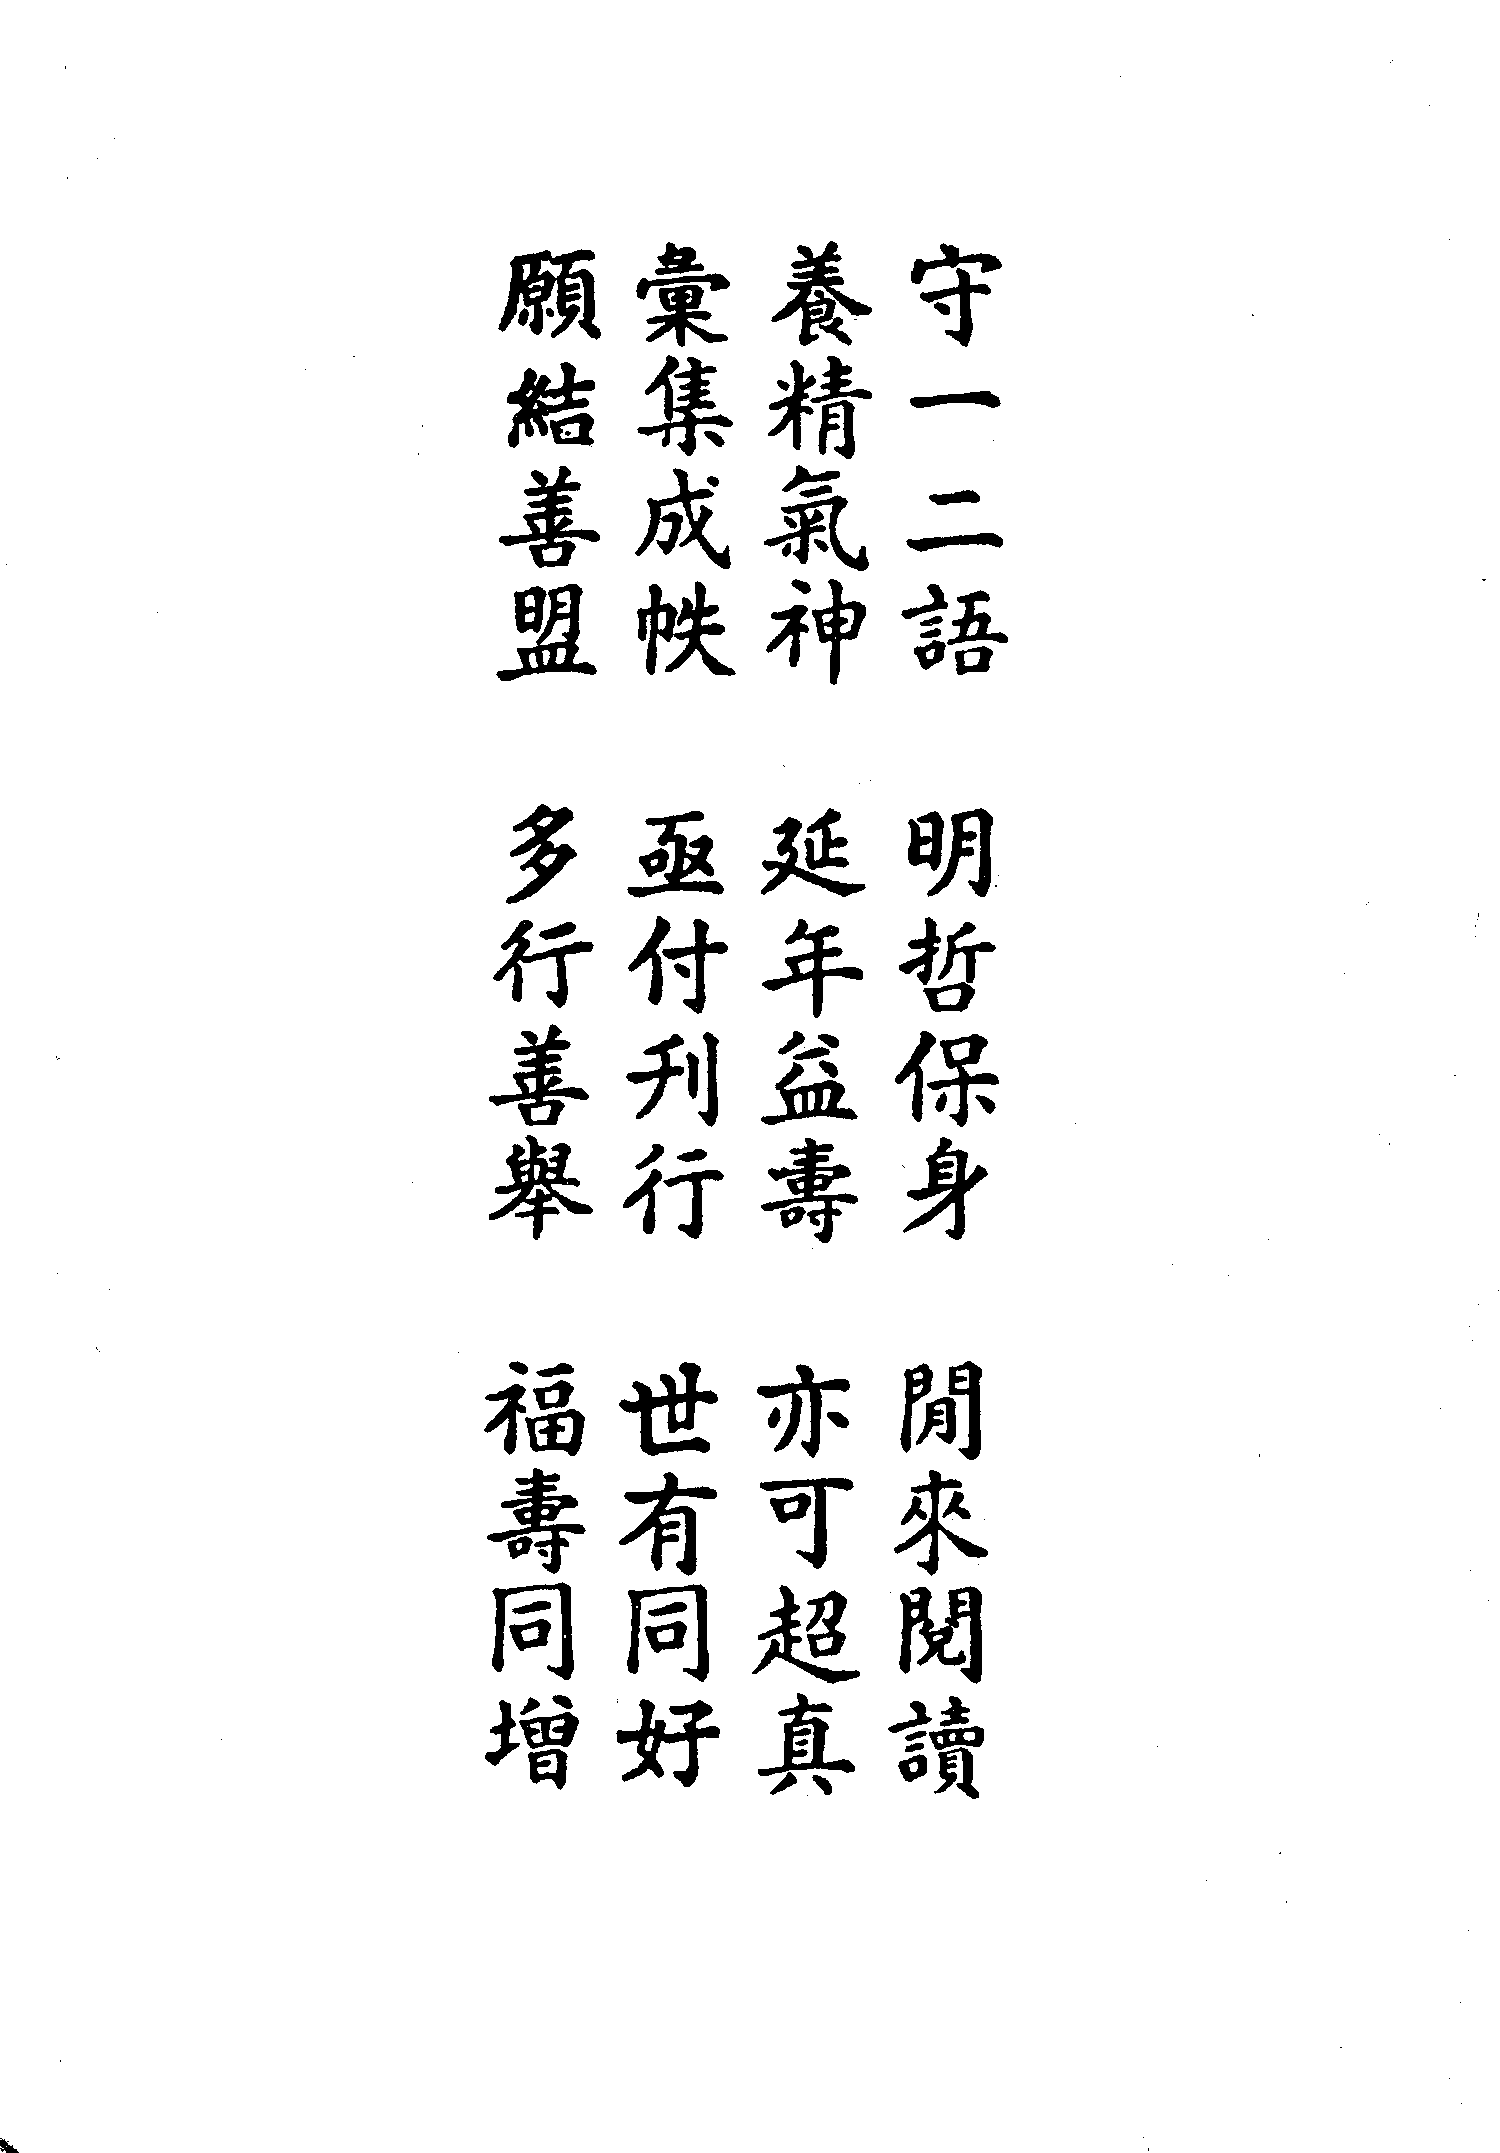 守一二語　明哲保身　閒來閱讀
養精氣神　延年益壽　亦可超真
彙集成帙　亟付刊行　世有同好
願結善盟　多行善舉　福壽同增